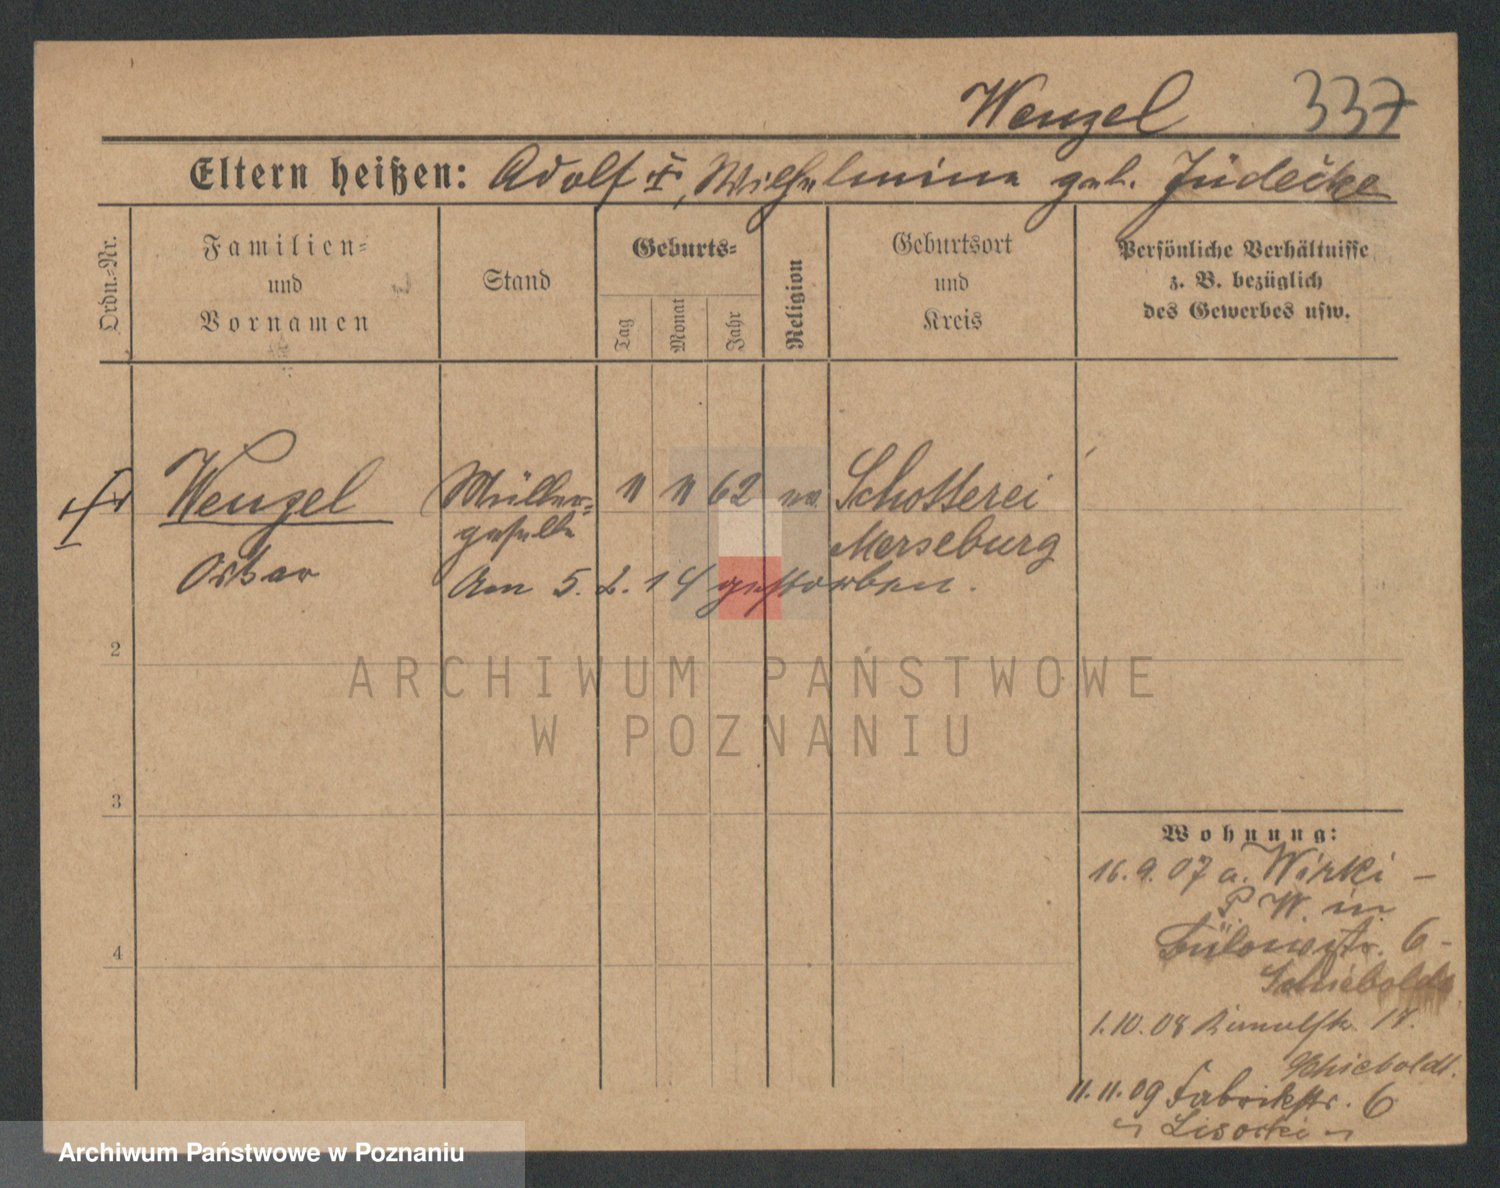 Wenzel 337
Eltern heißen: Adolf †, Wilhelmine geb. Jüdecke
Ordn.-Nr.
Familien-
und
Vornamen
Stand
Geburts-
Tag
Monat
Jahr
Religion
Geburtsort
und
Kreis
Persönliche Verhältnisse
z. B. bezüglich
des Gewerbes usw.
Wenzel
Oskar
Müller-
geselle
11 11 62
Schotterei
Merseburg
Am 5. 2. 14 gestorben.
2
3
4
Wohnung:
16. 9. 07 a. Wirki -
P. W. in
Bülowstr. 6 -
Schieboldt
1. 10. 08 18.
Schieboldt.
11. 11. 09 Fabrikstr. 6
Lisocki
ARCHIWUM PAŃSTWOWE
W POZNANIU
Archiwum Państwowe w Poznaniu